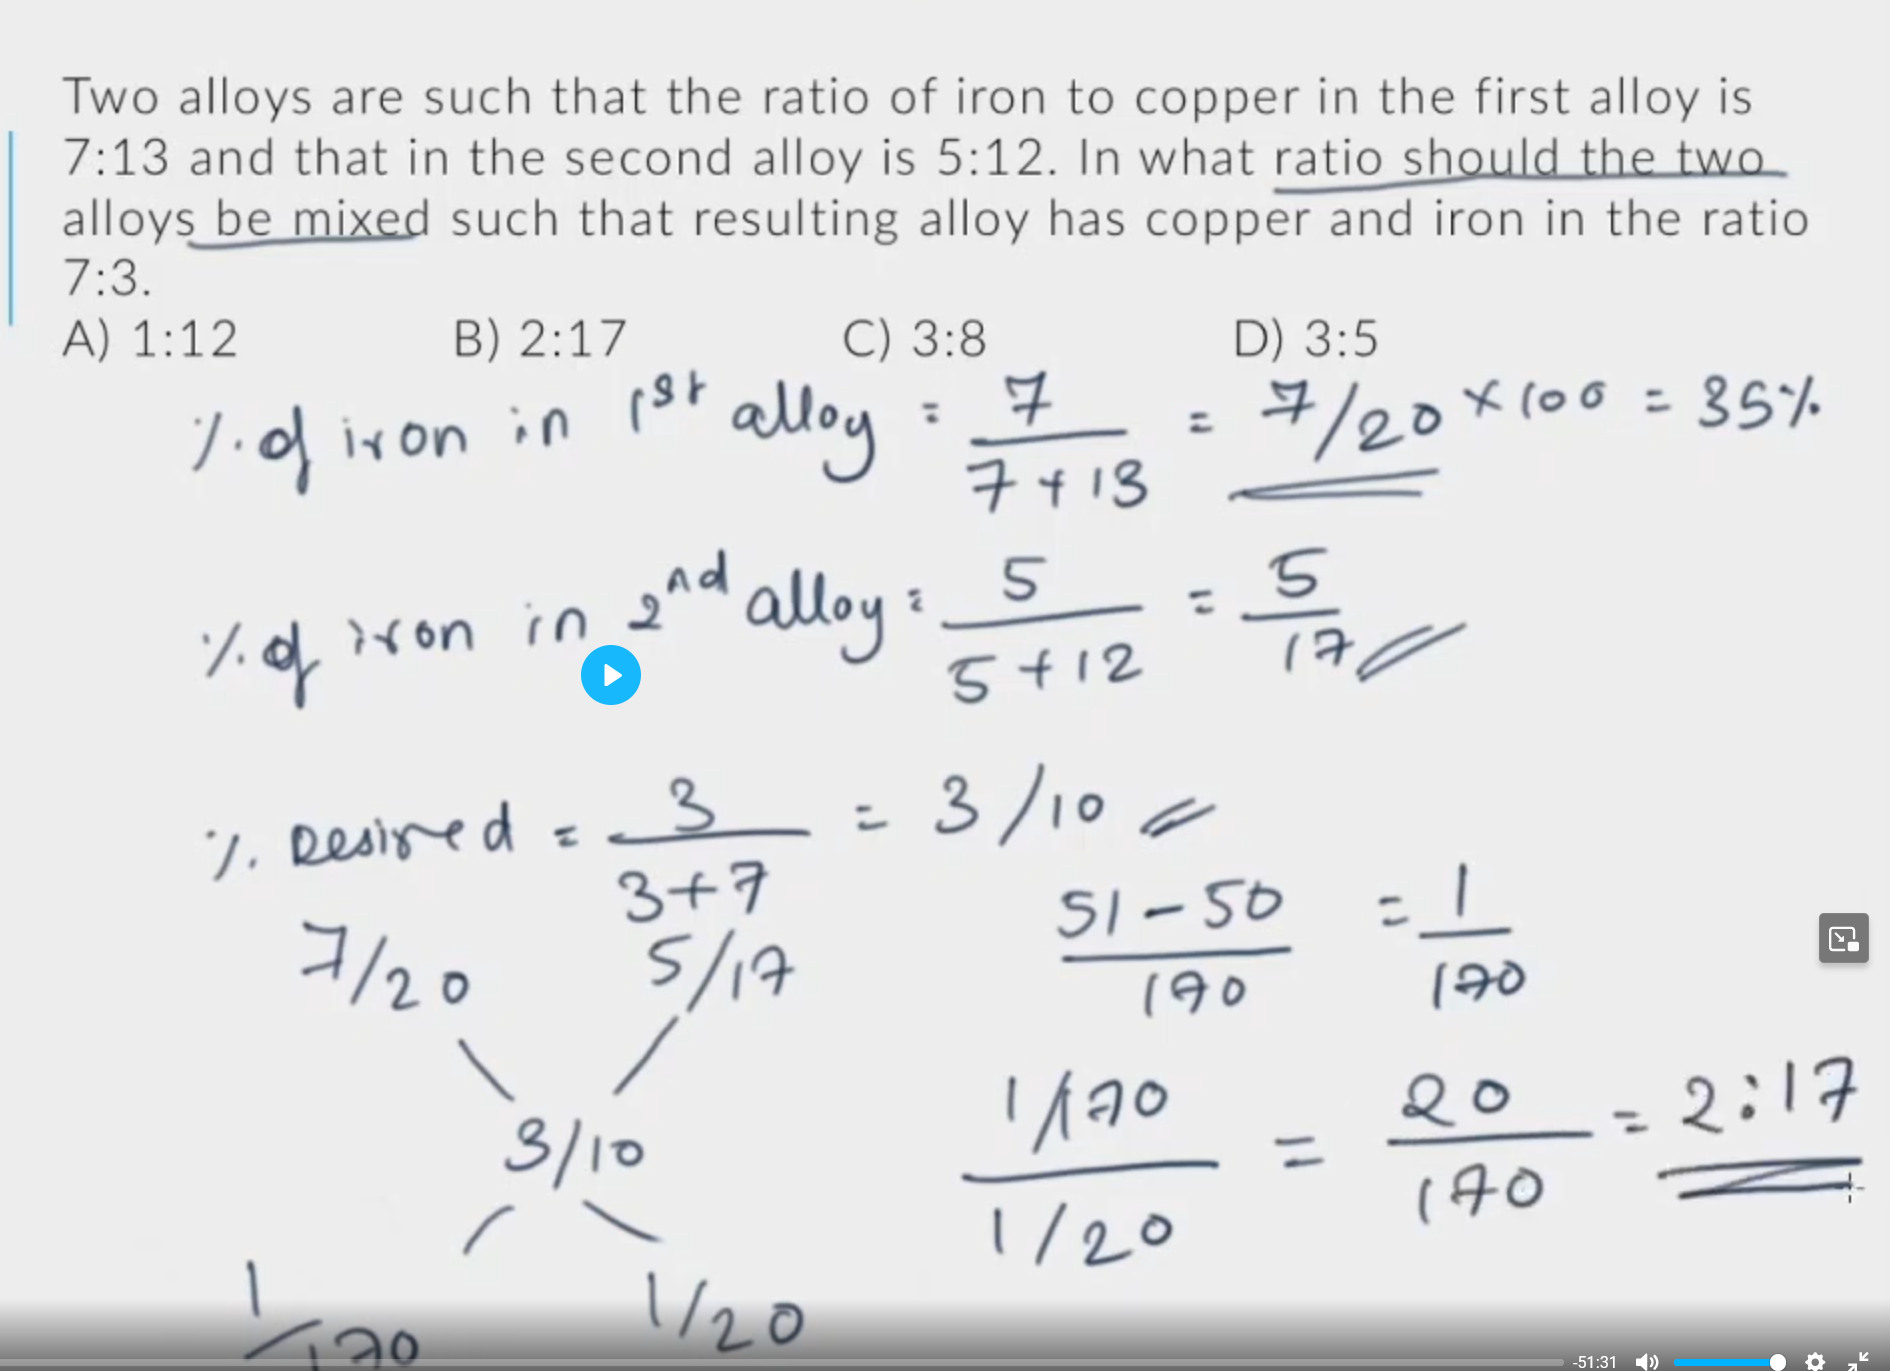 Two alloys are such that the ratio of iron to copper in the first alloy is
7:13 and that in the second alloy is 5:12. In what ratio should the two
alloys be mixed such that resulting alloy has copper and iron in the ratio
7:3.
A) 1:12 B) 2:17 C) 3:8 D) 3:5
% of iron in 1st alloy = 7 / 7+13 = 7/20 × 100 = 35%
% of iron in 2nd alloy = 5 / 5+12 = 5/17
% Desired = 3 / 3+7 = 3/10
7/20 5/17
51-50 / 170 = 1 / 170
3/10
1/170 / 1/20 = 20 / 170 = 2:17
1/170 1/20
-51:31